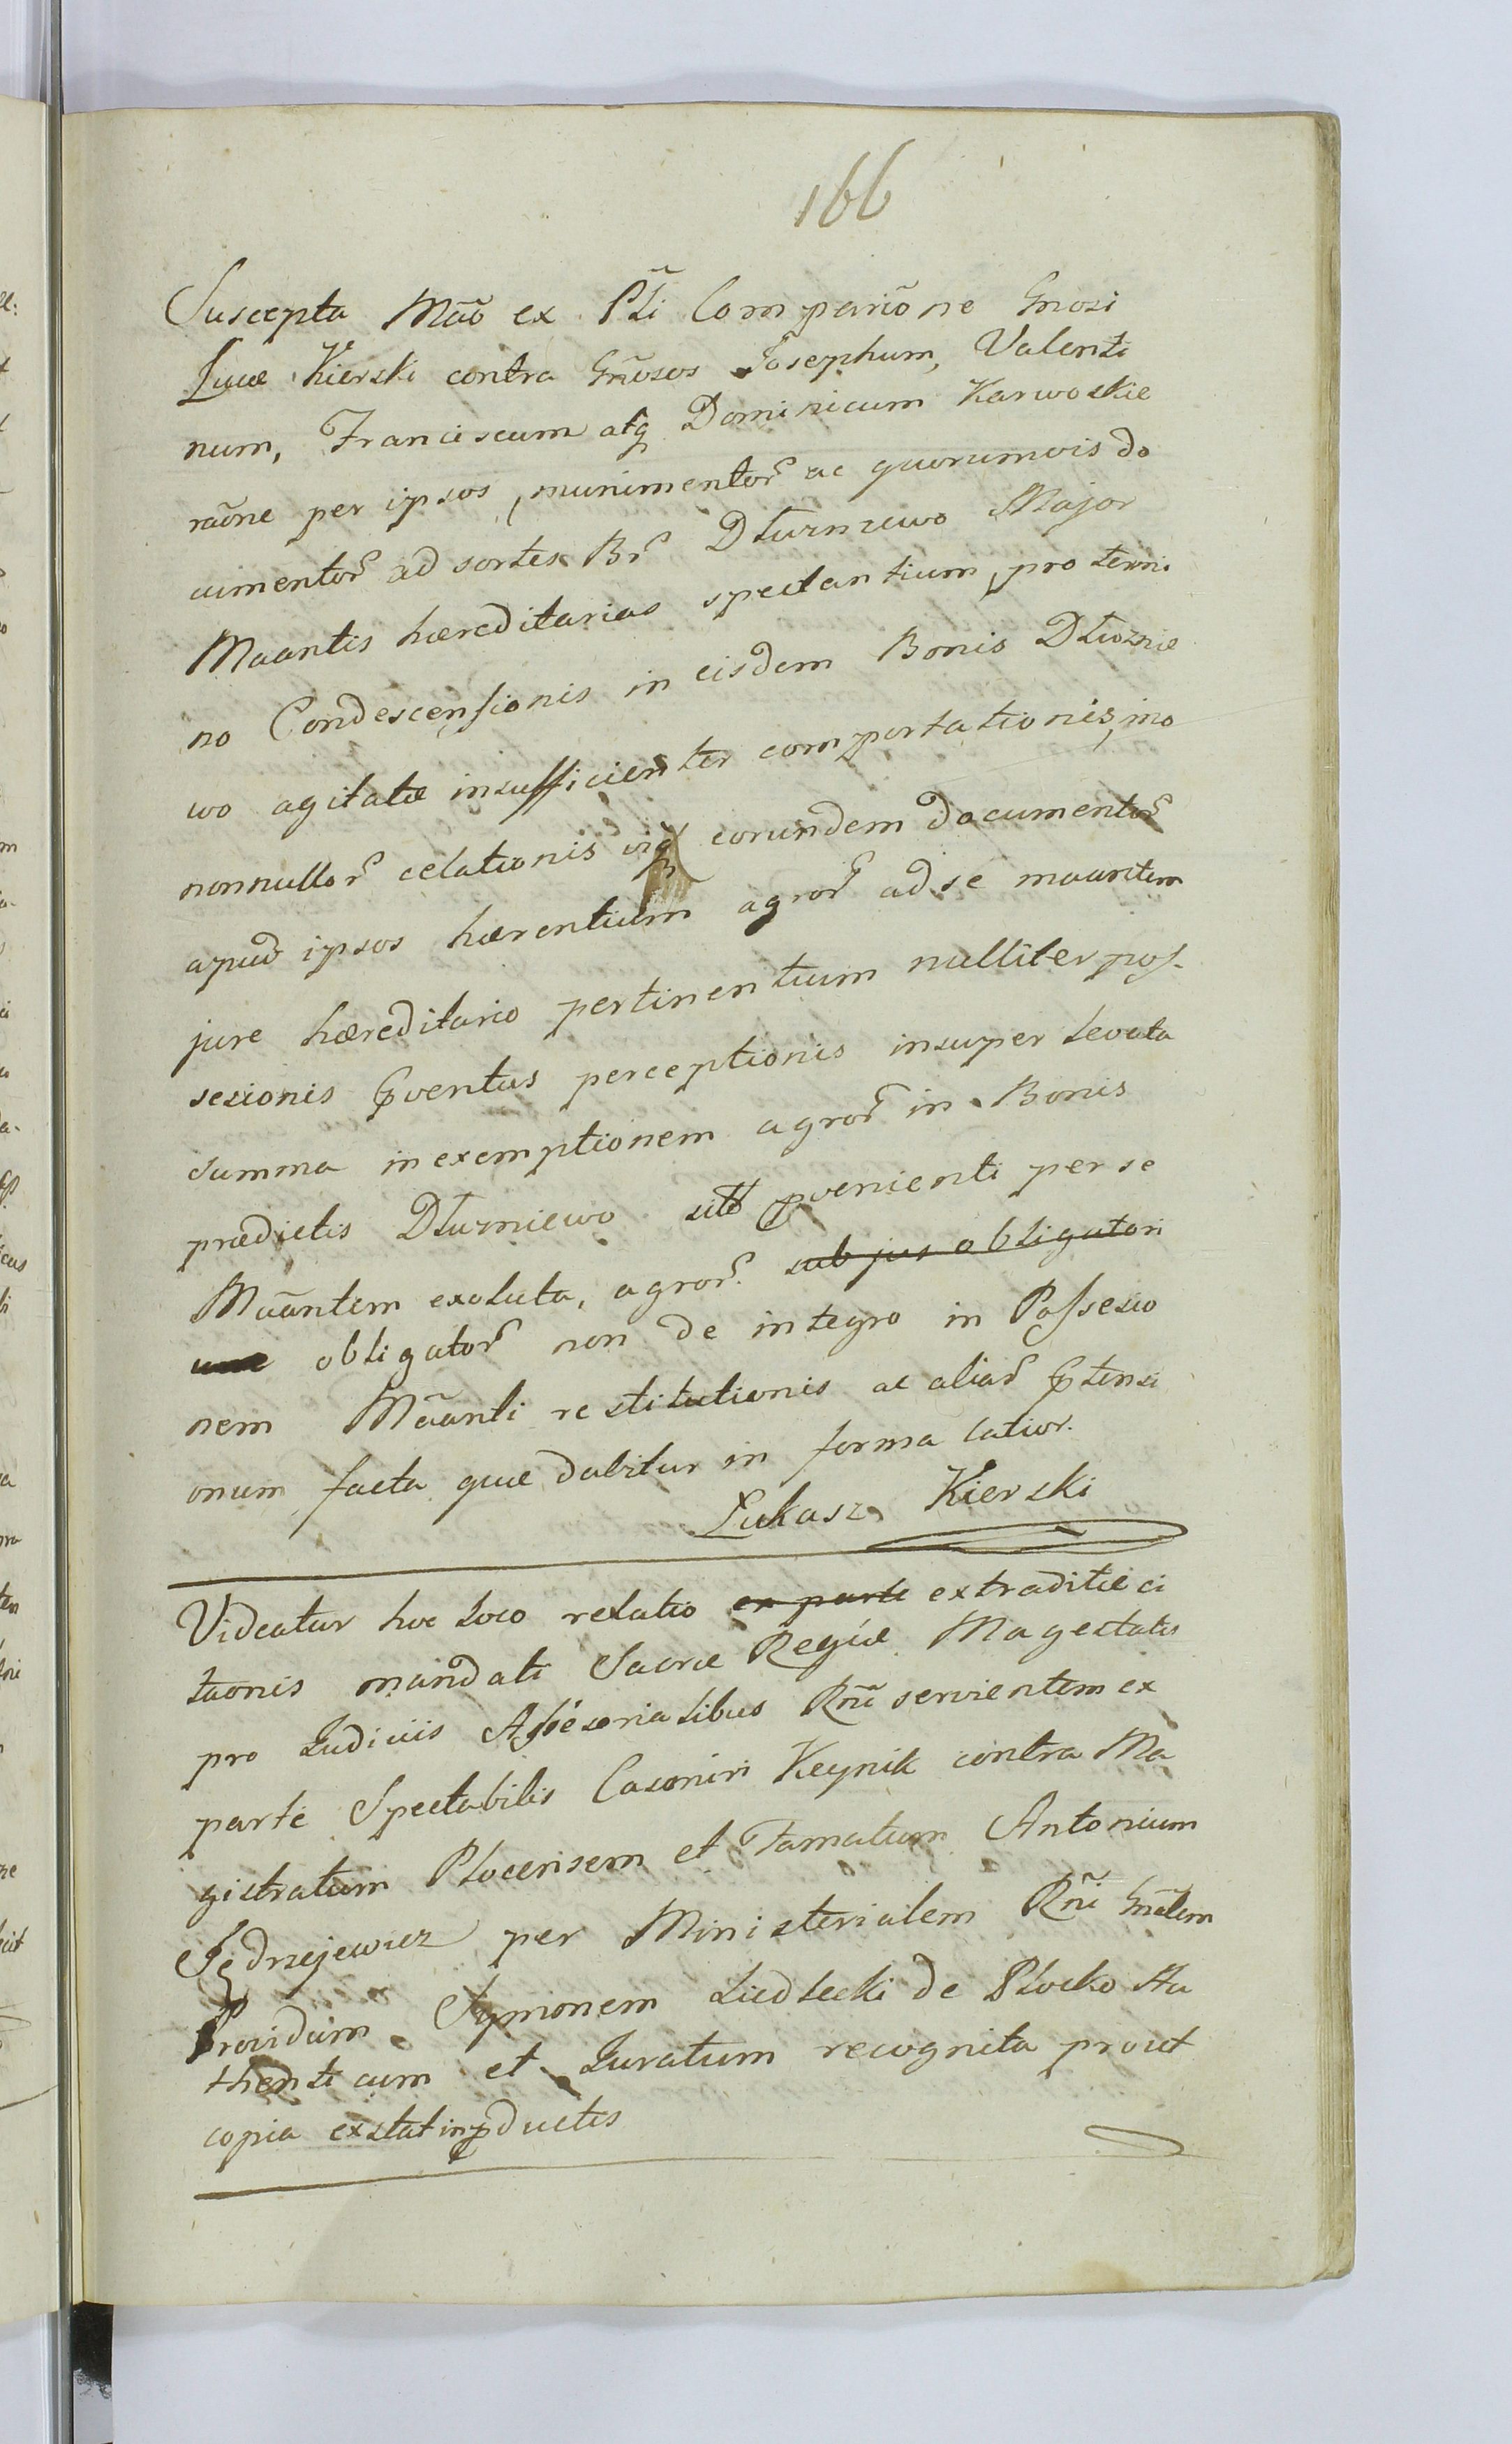 166
Suscepta Mãõ ex Pti Compariõne Gnosi
Lucæ Kierski contra Gñosos Josephum, Valenti
num, Franciscum atq Dominicum Karwoskie
raõne per ipsos, munimentor ac quorumvis do
cumentor ad sortes Br Dłurniewo Major
Maantis hæreditarias spectantium, pro termi
no Condescensionis in eisdem Bonis Dłuznie
wo agitatæ insufficienter comportationis, imo
nonnullor celationis viq eorundem documentor
apud ipsos hærentium agror ad se maantem
jure hæreditario pertinentium nulliter pos-
sesionis pventus perceptionis insuper levata
summa in exemptionem agror in Bonis
prædictis Dłurniewo sitor pvenienti per se
Mãantem exoluta, agror. sub jus obligatori
obligator non de integro in Possesio
nem Mãanti restitutionis ac aliar ptensi
onum facta quæ dabitur in forma latior.
Łukasz Kierski
Videatur hoc loco relatio ex parte extraditæ ci
taonis mandati Sacræ Regiæ Magestatis
pro Judiciis Assesorialibus Rñi servientem ex
parte Spectabilis Casimiri Keynik contra Ma
gistratum Plocensem et Famatum Antonium
Jędrzejewicz per Ministerialem Rñi Gñalem
Providum Symonem Siedlecki de Płocko Au
thenticum et Juratum recognita prout
copia exstat in pductis